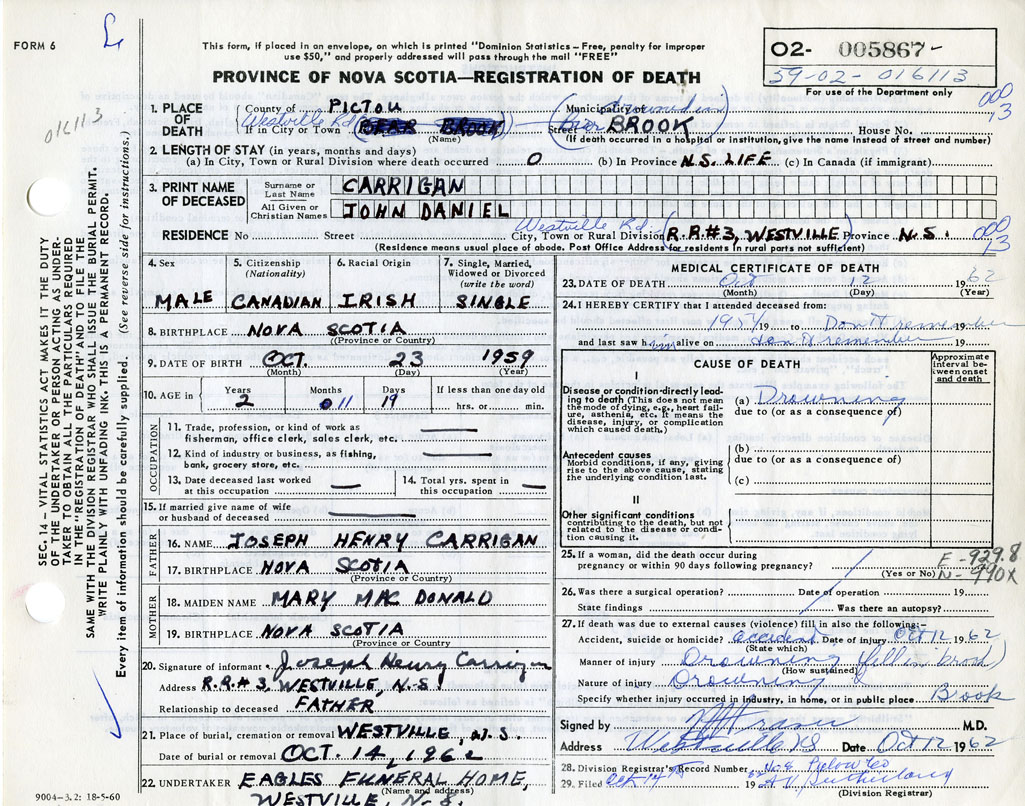 FORM 6
This form, if placed in an envelope, on which is printed "Dominion Statistics - Free, penalty for improper
use $50," and properly addressed will pass through the mail "FREE"
PROVINCE OF NOVA SCOTIA—REGISTRATION OF DEATH
O2- 005867-
59-02-016113
For use of the Department only
016113
000
13
1. PLACE OF DEATH County of PICTOU Municipality of drowned in
Westville Rd If in City or Town (BEAR BROOK) (Name) Street Bear BROOK House No.
(If death occurred in a hospital or institution, give the name instead of street and number)
2. LENGTH OF STAY (in years, months and days)
(a) In City, Town or Rural Division where death occurred 0 (b) In Province N.S. LIFE (c) In Canada (if immigrant)
3. PRINT NAME OF DECEASED Surname or Last Name CARRIGAN
All Given or Christian Names JOHN DANIEL
Westville Rd. 000
RESIDENCE No Street City, Town or Rural Division (R.R.#3, WESTVILLE) Province N.S. 13
(Residence means usual place of abode. Post Office Address for residents in rural parts not sufficient)
4. Sex MALE
5. Citizenship (Nationality) CANADIAN
6. Racial Origin IRISH
7. Single, Married, Widowed or Divorced (write the word) SINGLE
8. BIRTHPLACE NOVA SCOTIA
(Province or Country)
9. DATE OF BIRTH OCT. 23 1959
(Month) (Day) (Year)
10. AGE in Years 2 Months 011 Days 19 If less than one day old
hrs. or min.
OCCUPATION
11. Trade, profession, or kind of work as
fisherman, office clerk, sales clerk, etc. —
12. Kind of industry or business, as fishing,
bank, grocery store, etc. —
13. Date deceased last worked
at this occupation —
14. Total yrs. spent in
this occupation —
15. If married give name of wife
or husband of deceased —
FATHER
16. NAME JOSEPH HENRY CARRIGAN
17. BIRTHPLACE NOVA SCOTIA
(Province or Country)
MOTHER
18. MAIDEN NAME MARY MAC DONALD
19. BIRTHPLACE NOVA SCOTIA
(Province or Country)
20. Signature of informant Joseph Henry Carrigan
Address R.R.#3, WESTVILLE, N.S.
Relationship to deceased FATHER
21. Place of burial, cremation or removal WESTVILLE N.S.
Date of burial or removal OCT. 14, 1962
22. UNDERTAKER EAGLES FUNERAL HOME,
(Name and address)
WESTVILLE, N.S.
MEDICAL CERTIFICATE OF DEATH
23. DATE OF DEATH Oct 12 1962
(Month) (Day) (Year)
24. I HEREBY CERTIFY that I attended deceased from:
19 to Don't remember 19
and last saw him alive on don't remember 19
CAUSE OF DEATH
Approximate interval between onset and death
I
Disease or condition directly leading to death (This does not mean the mode of dying, e.g., heart failure, asthenia, etc. It means the disease, injury, or complication which caused death.)
(a) Drowning
due to (or as a consequence of)
Antecedent causes
Morbid conditions, if any, giving rise to the above cause, stating the underlying condition last.
(b)
due to (or as a consequence of)
(c)
II
Other significant conditions
contributing to the death, but not related to the disease or condition causing it.
25. If a woman, did the death occur during
pregnancy or within 90 days following pregnancy? (Yes or No)
E-929.8
N-990X
26. Was there a surgical operation? Date of operation 19
State findings Was there an autopsy?
27. If death was due to external causes (violence) fill in also the following:
Accident, suicide or homicide? accident Date of injury Oct 12 1962
(State which)
Manner of injury Drowning (fell in brook)
(How sustained)
Nature of injury Drowning
Specify whether injury occurred in industry, in home, or in public place Brook
Signed by Fraser M.D.
Address Westville NS Date Oct 12 1962
28. Division Registrar's Record Number
29. Filed Oct 14 19
(Division Registrar)
SEC. 14 - VITAL STATISTICS ACT MAKES IT THE DUTY
OF THE UNDERTAKER OR PERSON ACTING AS UNDER-
TAKER TO OBTAIN ALL THE PARTICULARS REQUIRED
IN THE "REGISTRATION OF DEATH" AND TO FILE THE
SAME WITH THE DIVISION REGISTRAR WHO SHALL ISSUE THE BURIAL PERMIT.
WRITE PLAINLY WITH UNFADING INK. THIS IS A PERMANENT RECORD.
Every item of information should be carefully supplied. (See reverse side for instructions.)
9004-3.2: 18-5-60